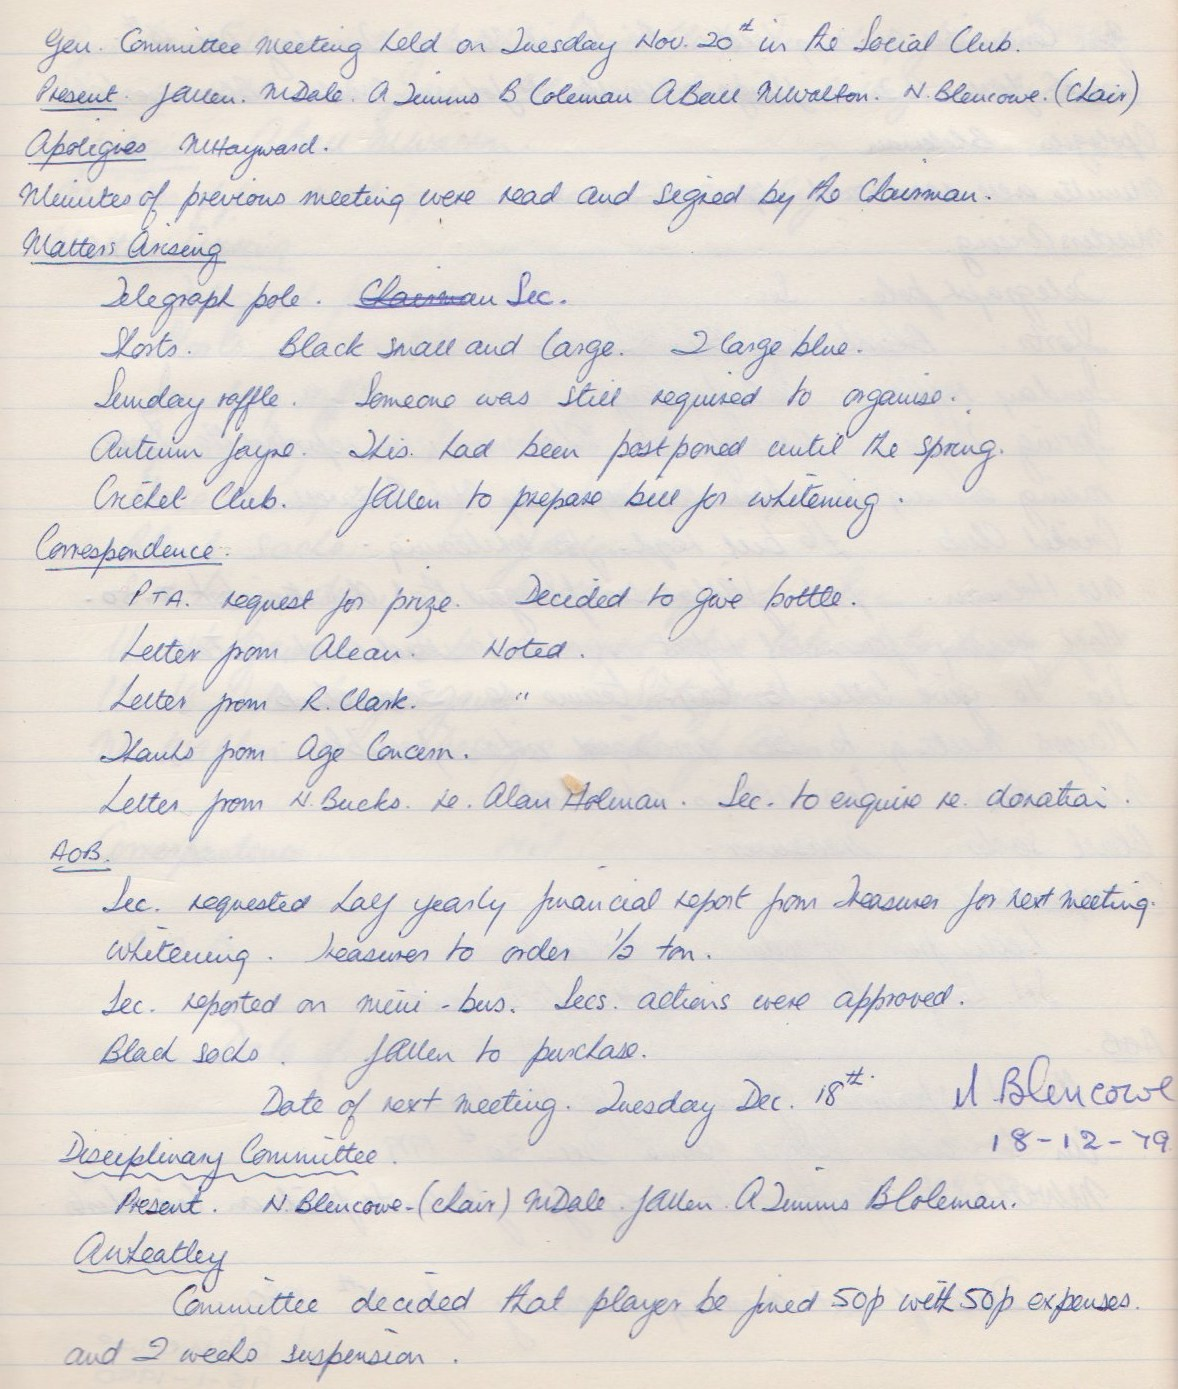 Gen. Committee Meeting held on Tuesday Nov. 20th in the Social Club.
Present. J Allen. M Dale. A Timms B Coleman A Beall M Walton. N. Blencowe. (Chair)
Apoligies M Hayward.
Minutes of previous meeting were read and signed by the Chairman.
Matters Arising
Telegraph pole. Chairman Sec.
Shorts. Black small and large. 2 large blue.
Sunday raffle. Someone was still required to organise.
Autumn Jayne. This had been postponed until the spring.
Cricket Club. J Allen to prepare bill for whitening.
Correspondence.
PTA. request for prize. Decided to give bottle.
Letter from Alcan. Noted.
Letter from R. Clark. "
Thanks from Age Concern.
Letter from N. Bucks. re. Alan Holman. Sec. to enquire re. donation.
AOB.
Sec. requested half yearly financial report from Treasurer for next meeting.
Whitening. Treasurer to order 1/2 ton.
Sec. reported on mini-bus. Secs. actions were approved.
Black socks. J Allen to purchase.
Date of next meeting. Tuesday Dec. 18th.
N Blencowe
18-12-79
Disciplinary Committee.
Present. N. Blencowe-(chair) M Dale J Allen A Timms B Coleman.
A Wheatley
Committee decided that player be fined 50p with 50p expenses.
and 2 weeks suspension.